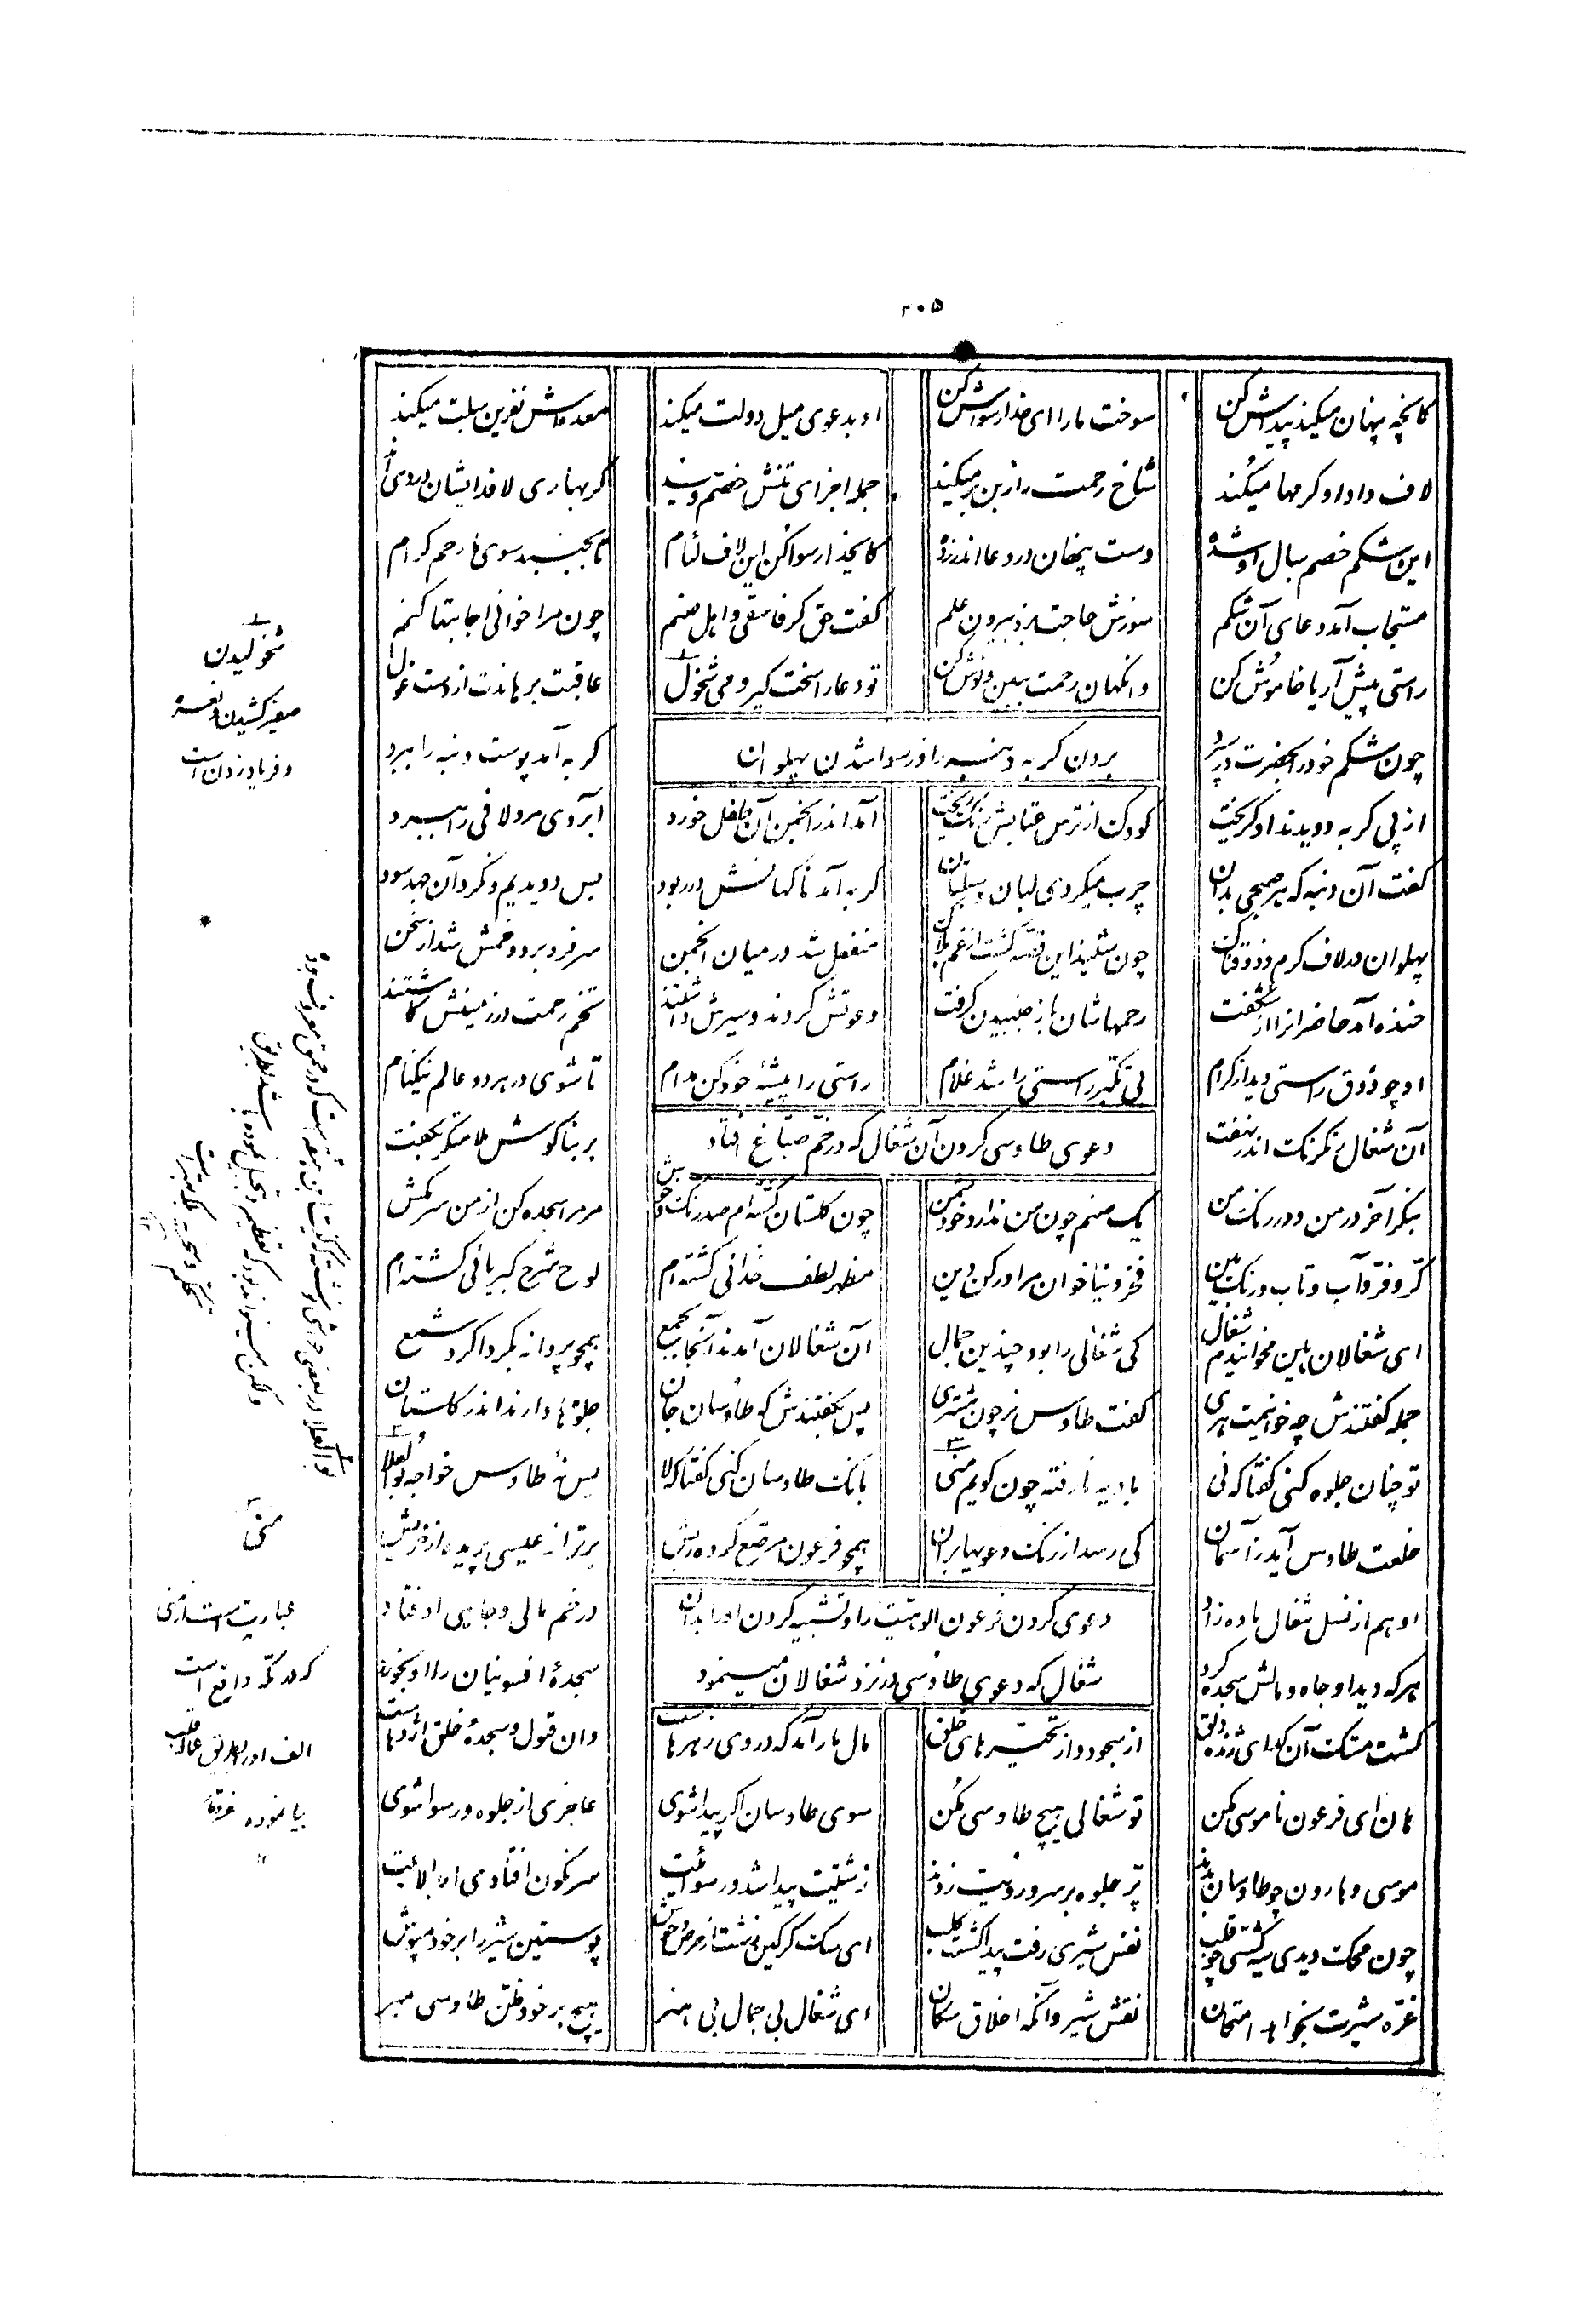 ۲۰۵
کانچه پنهان میکند پیداش کن سوخت ما را ای خدا رسواش کن او بدعوی میل دولت میکند معده‌اش نفرین سبلت میکند
لاف واداد کرمها میکند شاخ رحمت را ز بن بر میکند جمله اجزای تنش خصم ویند کز بهاری لافد ایشان در دی اند
این شکم خصم سبال او شده دست پنهان در دعا اندر زده کایخدا رسوا کن این لاف لئام تا بجنبد سوی ما رحم کرام
مستجاب آمد دعای آن شکم سوزش حاجت بزد بیرون علم گفت حق گر فاسقی و اهل صنم چون مرا خوانی اجابتها کنم
راستی پیش آر یا خاموش کن وانگهان رحمت ببین و نوش کن تو دعا را سخت گیر و می شخول عاقبت برهاندت از دست غول
بردن گربه دنبه را و رسوا شدن پهلوان
چون شکم خود را بحضرت در سپرد گربه آمد پوست دنبه را ببرد
از پی گربه دویدند او گریخت کودک از ترس عتابش رنگ ریخت آمد اندر انجمن آن طفل خورد آبروی مرد لافی را ببرد
گفت آن دنبه که هر صبحی بدان چرب میکردی لبان و سبلتان گربه آمد ناگهانش در ربود بس دویدیم و نکرد آن جهد سود
پهلوان در لاف گرم و ذوقناک چون شنید این قصه گشت از غم هلاک منفعل شد در میان انجمن سر فرو برد و خمش شد از سخن
خنده آمد حاضرانرا از شگفت رحمهاشان باز جنبیدن گرفت دعوتش کردند و سیرش داشتند تخم رحمت در زمینش کاشتند
او چو ذوق راستی دید از کرام بی تکبر راستی را شد غلام راستی را پیشهٔ خود کن مدام تا شوی در هر دو عالم نیکنام
دعوی طاوسی کردن آن شغال که در خم صباغ افتاد
آن شغال رنگ رنگ اندر نهفت بر بناگوش ملامتگر بگفت
بنگر آخر در من و در رنگ من یک صنم چون من ندارد خود شمن چون گلستان گشته‌ام صد رنگ و خوش مر مرا سجده کن از من سر مکش
کر و فر و آب و تاب و رنگ بین فخر دنیا خوان مرا و رکن دین مظهر لطف خدائی گشته‌ام لوح شرح کبریائی گشته‌ام
ای شغالان هین مخوانیدم شغال کی شغالی را بود چندین جمال آن شغالان آمدند آنجا بجمع همچو پروانه بگرداگرد شمع
جمله گفتندش چه خوانیمت هری گفت طاوس نر چون مشتری پس بگفتندش که طاوسان جان جلوه‌ها دارند اندر گلستان
تو چنان جلوه کنی گفتا که نی بادیه نارفته چون گویم منی بانگ طاوسان کنی گفتا که لا پس نهٔ طاوس خواجه بوالعلا
خلعت طاوس آید ز آسمان کی رسد از رنگ و دعویها بران همچو فرعون مرصع کرده ریش برتر از عیسی پریده از خریش
دعوی کردن فرعون الوهیت را و تشبیه کردن او را بدان شغال که دعوی طاوسی در نزد شغالان مینمود
او هم از نسل شغال ماده زاد در خم مالی و جاهی او فتاد
هر که دید او جاه و مالش سجده کرد سجدهٔ افسوسیان را او بخورد
گشت مستک آن گدای ژنده دلق از سجود و از تحیرهای خلق مال مار آمد که در وی زهرهاست وان قبول و سجدهٔ خلق اژدهاست
هان ای فرعون ناموسی مکن تو شغالی هیچ طاوسی مکن سوی طاوسان اگر پیدا شوی عاجزی از جلوه و رسوا شوی
موسی و هارون چو طاوسان بدند پر جلوه بر سر و رویت زدند زشتیت پیدا شد و رسوائیت سرنگون افتادی از بالائیت
چون محک دیدی سیه گشتی چو قلب نقش شیری رفت پیدا گشت کلب ای سگ گرگین زشت از حرص و جوش پوستین شیر را بر خود مپوش
غره شیرت بخواهد امتحان نقش شیر و آنگه اخلاق سگان ای شغال بی جمال بی هنر هیچ بر خود ظن طاوسی مبر
شخولیدن
صفیر کشیدن و نعره
و فریاد زدن است
بوالعلا در بعضی حواشی نوشته که کنیت
منی
عبارت است از منی
که در مکه واقع است
الف او را بطریق قلب
بیا نموده